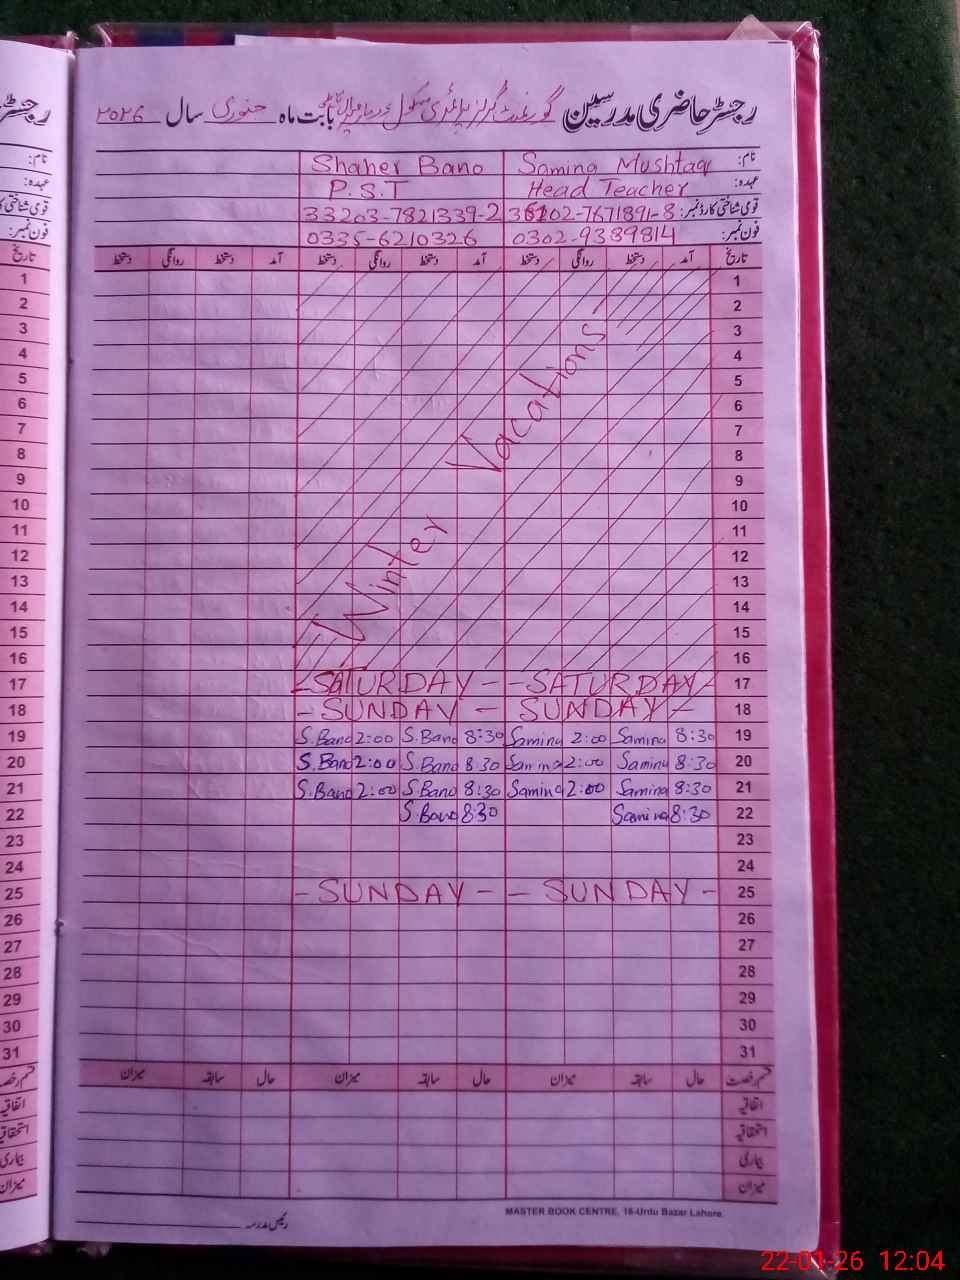 رجسٹر حاضری مدرسین گورنمنٹ گرلز پرائمری سکول بابت ماہ جنوری سال ۲۰۲۶
نام: Samina Mushtaq Shaher Bano
عہدہ: Head Teacher P.S.T
قومی شناختی کارڈ نمبر: 36102-7671891-8 33203-7821339-2
فون نمبر: 0302-9389814 0335-6210326
تاریخ آمد دستخط روانگی دستخط آمد دستخط روانگی دستخط آمد دستخط روانگی دستخط
1
2
3
4
5
6
7
8
9
10
11
12
13
14
15
16
Winter Vacations
-SATURDAY- -SATURDAY- 17
-SUNDAY- SUNDAY- 18
S.Bano 2:00 S.Bano 8:30 Samina 2:00 Samina 8:30 19
S.Bano 2:00 S.Bano 8:30 Samina 2:00 Samina 8:30 20
S.Bano 2:00 S.Bano 8:30 Samina 2:00 Samina 8:30 21
S.Bano 8:30 Samina 8:30 22
23
24
-SUNDAY- -SUNDAY- 25
26
27
28
29
30
31
قسم رخصت حال سابقہ میزان حال سابقہ میزان حال سابقہ میزان
اتفاقیہ
استحقاقیہ
بیماری
میزان
رئیس مدرسہ
MASTER BOOK CENTRE, 16-Urdu Bazar Lahore.
رجسٹر
نام:
عہدہ:
قومی شناختی کا
فون نمبر:
تاریخ
1
2
3
4
5
6
7
8
9
10
11
12
13
14
15
16
17
18
19
20
21
22
23
24
25
26
27
28
29
30
31
قسم رخصت
اتفاقیہ
استحقاقیہ
بیماری
میزان
22-01-26 12:04